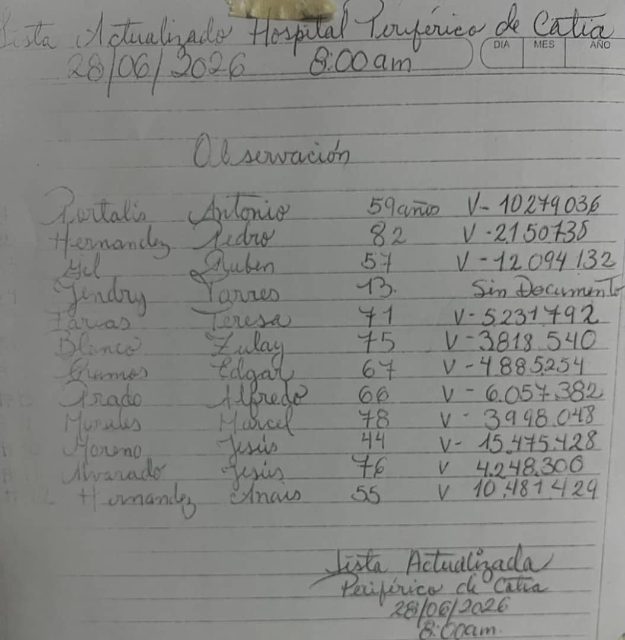 Lista Actualizado Hospital Periférico de Catia
DIA MES AÑO
28/06/2026 8:00am
Observación
Portalis Antonio 59 años V-10279036
Hernandez Pedro 82 V-2150735
Gil Ruben 57 V-12094132
Jendry Torres 13. Sin Documento
Farias Teresa 71 V-5231792
Blanco Zulay 75 V-3818.540
Ramos Edgar 67 V-4.885254
Prado Alfredo 66 V-6.057.382
Morales Marcel 78 V-3998.048
Moreno Jesús 44 V-15.475.428
Alvarado Jesús 76 V 4.248.306
Hernandez Anais 55 V 10.481429
Lista Actualizada
Periférico de Catia
28/06/2026
8:00am.